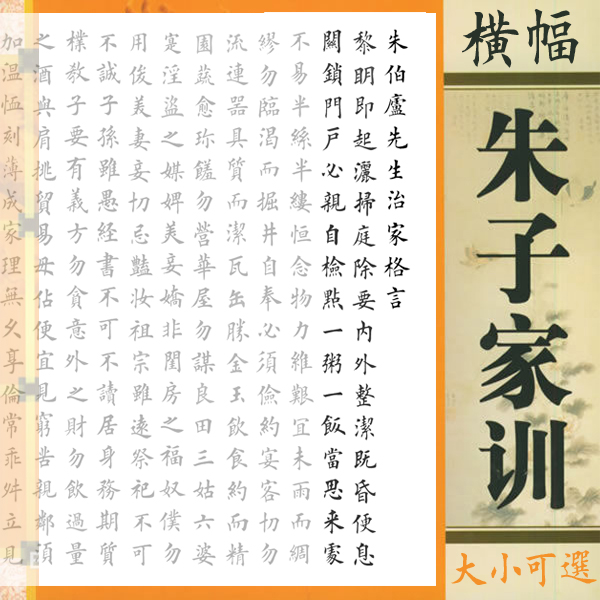 橫幅
朱子家训
大小可選
朱伯廬先生治家格言
黎明即起灑掃庭除要内外整潔既昏便息
關鎖門戶必親自檢點一粥一飯當思来處
不易半絲半縷恒念物力維艱宜未雨而綢
繆勿臨渴而掘井自奉必須儉約宴客切勿
流連器具質而潔瓦缶勝金玉飲食約而精
園蔬愈珍饈勿營華屋勿謀良田三姑六婆
寔淫盜之媒婢美妾嬌非閨房之福奴僕勿
用俊美妻妾切忌豔妝祖宗雖遠祭祀不可
不誠子孫雖愚經書不可不讀居身務期質
樸教子要有義方勿貪意外之財勿飲過量
之酒與肩挑貿易毋佔便宜見窮苦親鄰須
加温恤刻薄成家理無久享倫常乖舛立見